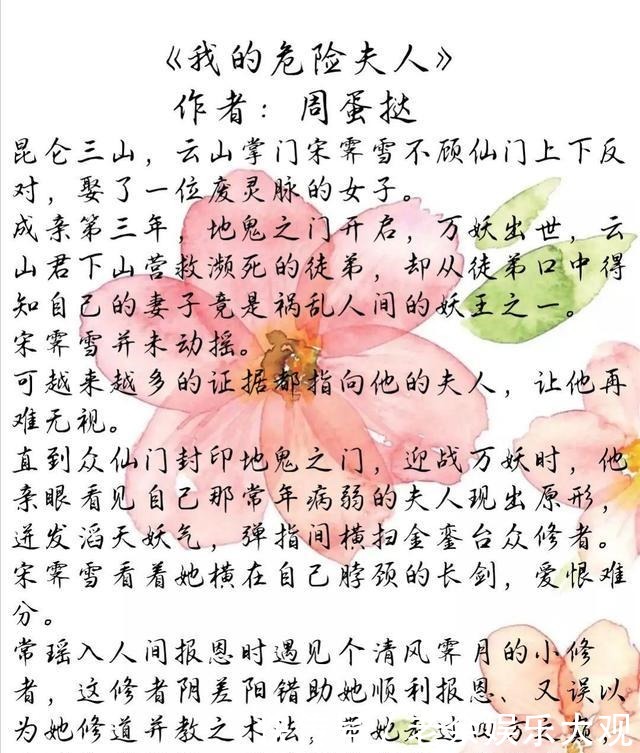 《我的危险夫人》
作者：周蛋挞
昆仑三山，云山掌门宋霁雪不顾仙门上下反
对，娶了一位废灵脉的女子。
成亲第三年，地鬼之门开启，万妖出世，云
山君下山营救濒死的徒弟，却从徒弟口中得
知自己的妻子竟是祸乱人间的妖王之一。
宋霁雪并未动摇。
可越来越多的证据都指向他的夫人，让他再
难无视。
直到众仙门封印地鬼之门，迎战万妖时，他
亲眼看见自己那常年病弱的夫人现出原形，
迸发滔天妖气，弹指间横扫金銮台众修者。
宋霁雪看着她横在自己脖颈的长剑，爱恨难
分。
常瑶入人间报恩时遇见个清风霁月的小修
者，这修者阴差阳错助她顺利报恩、又误以
为她修道并教之术法，带她
娱乐大观